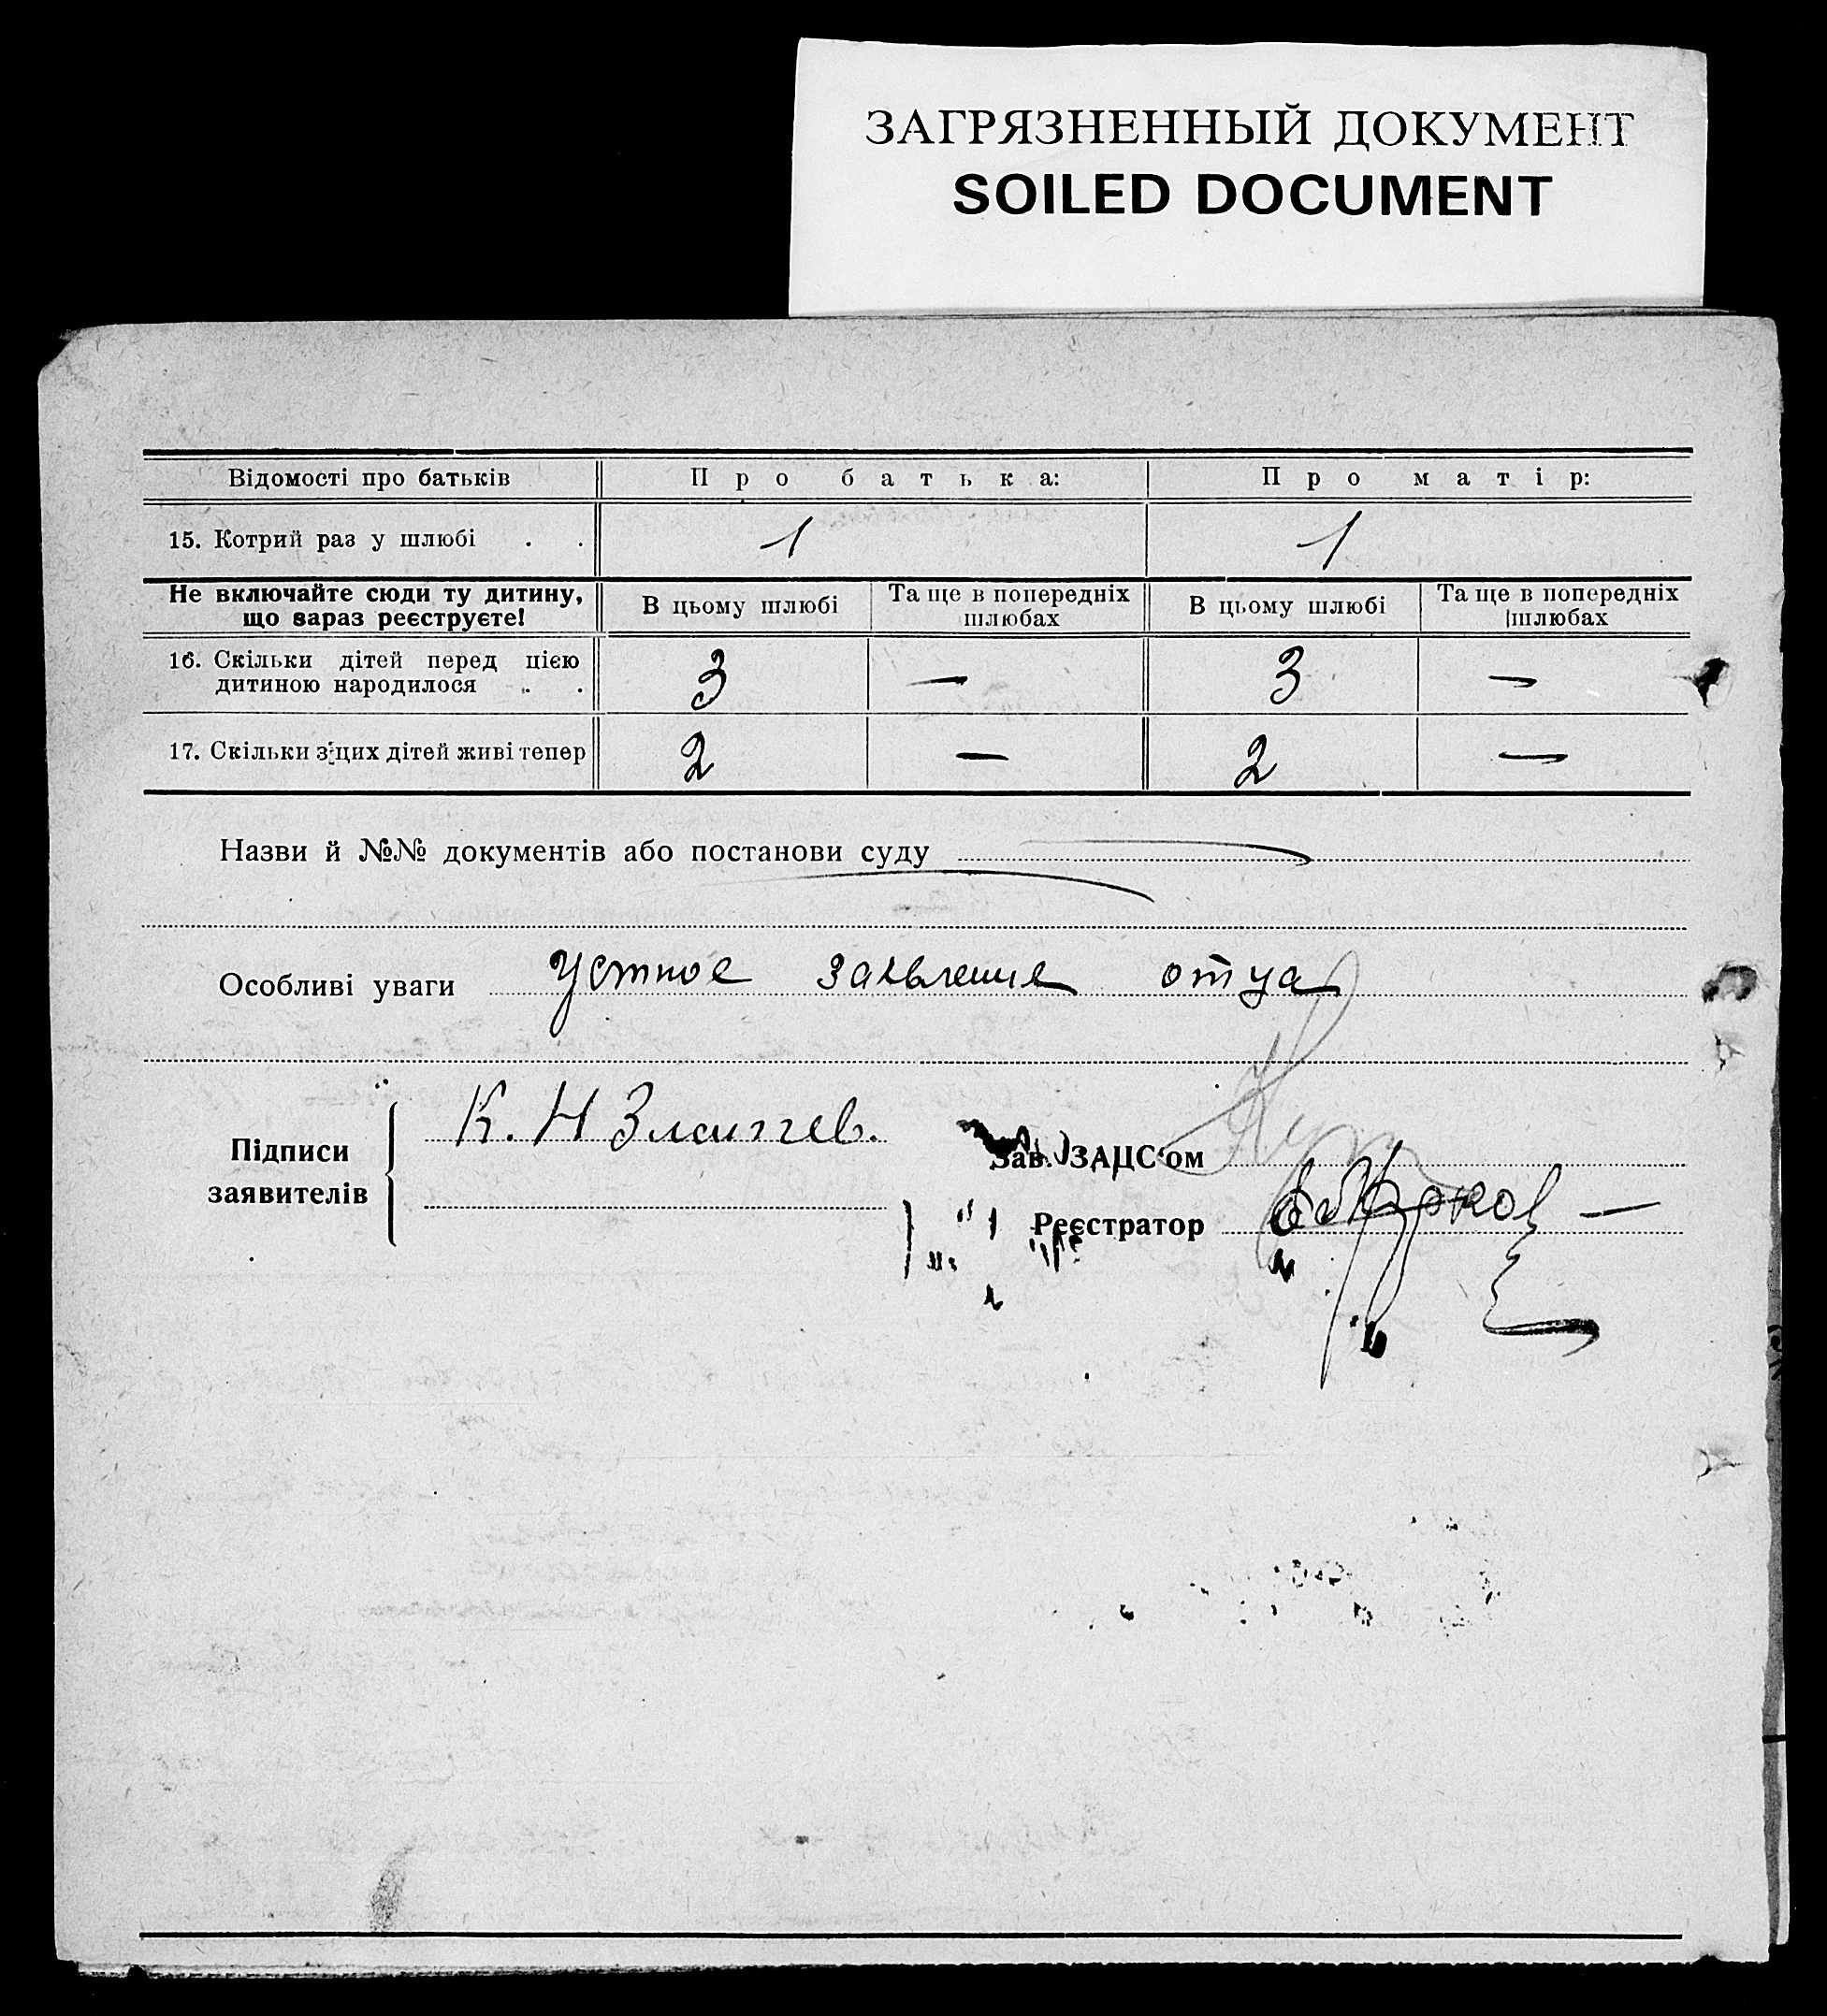 ЗАГРЯЗНЕННЫЙ ДОКУМЕНТ
SOILED DOCUMENT
Відомості про батьків Про батька: Про матір:
15. Котрий раз у шлюбі . . 1 1
Не включайте сюди ту дитину, що зараз реєструєте! В цьому шлюбі Та ще в попередніх шлюбах В цьому шлюбі Та ще в попередніх шлюбах
16. Скільки дітей перед цією дитиною народилося . . 3 — 3 —
17. Скільки з цих дітей живі тепер 2 — 2 —
Назви й №№ документів або постанови суду
Особливі уваги Устное заявление отца
Підписи заявителів К. Н
Зав. ЗАЦС'ом
Реєстратор